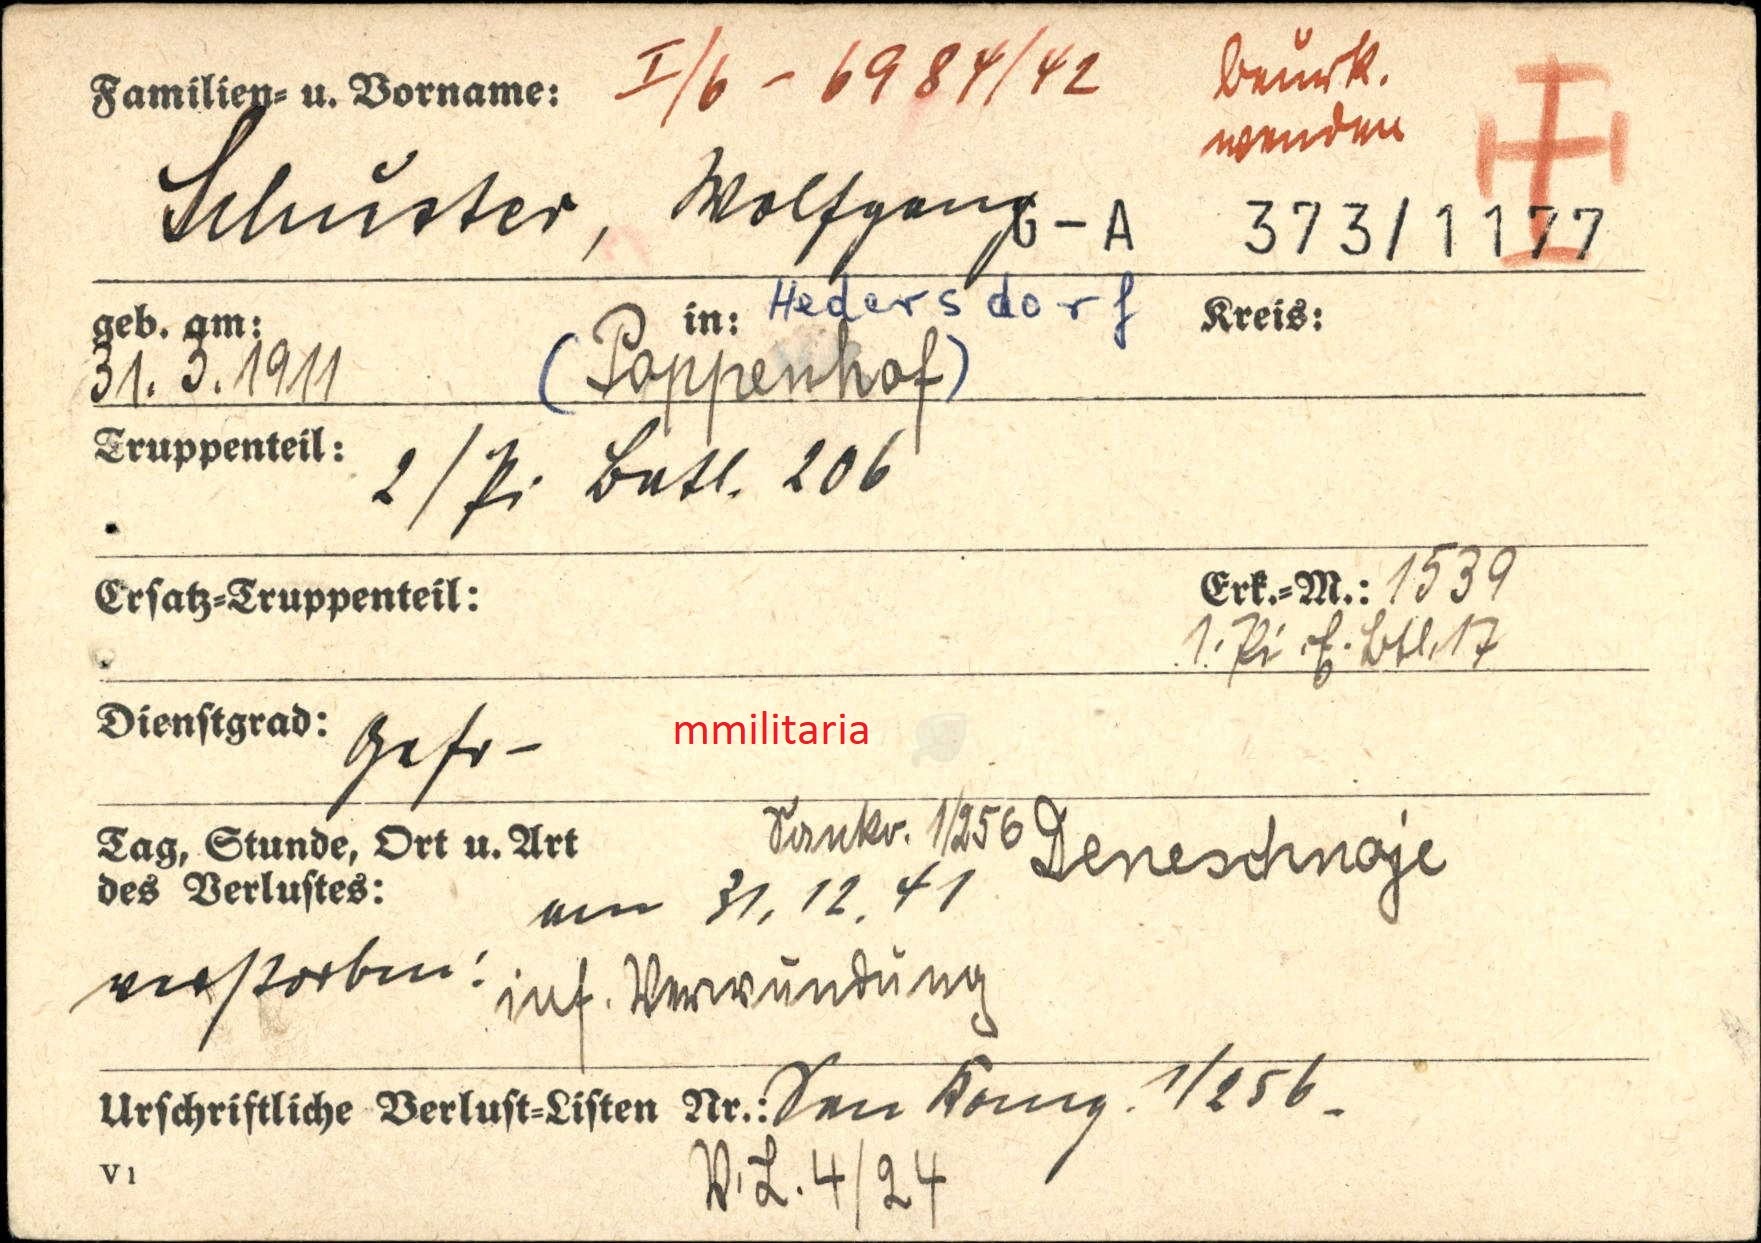 Familien- u. Vorname: I/6 - 6984/42
Beurk.
wenden
Schuster, Wolfgang
G-A 373/1177
geb. am: 31.3.1911 in: Hedersdorf Kreis:
(Poppenhof)
Truppenteil: 2/Pi Batl. 206
Ersatz-Truppenteil: Erk.-M.: 1539
1. Pi. E. Btl. 17
Dienstgrad: Gefr-
mmilitaria
Tag, Stunde, Ort u. Art
des Verlustes:
Sankp. 1/256 Deneschnoje
am 31.12.41
verstorben: inf. Verwundung
Urschriftliche Verlust-Listen Nr.: San Komp. 1/256-
V1
V.L. 4/24